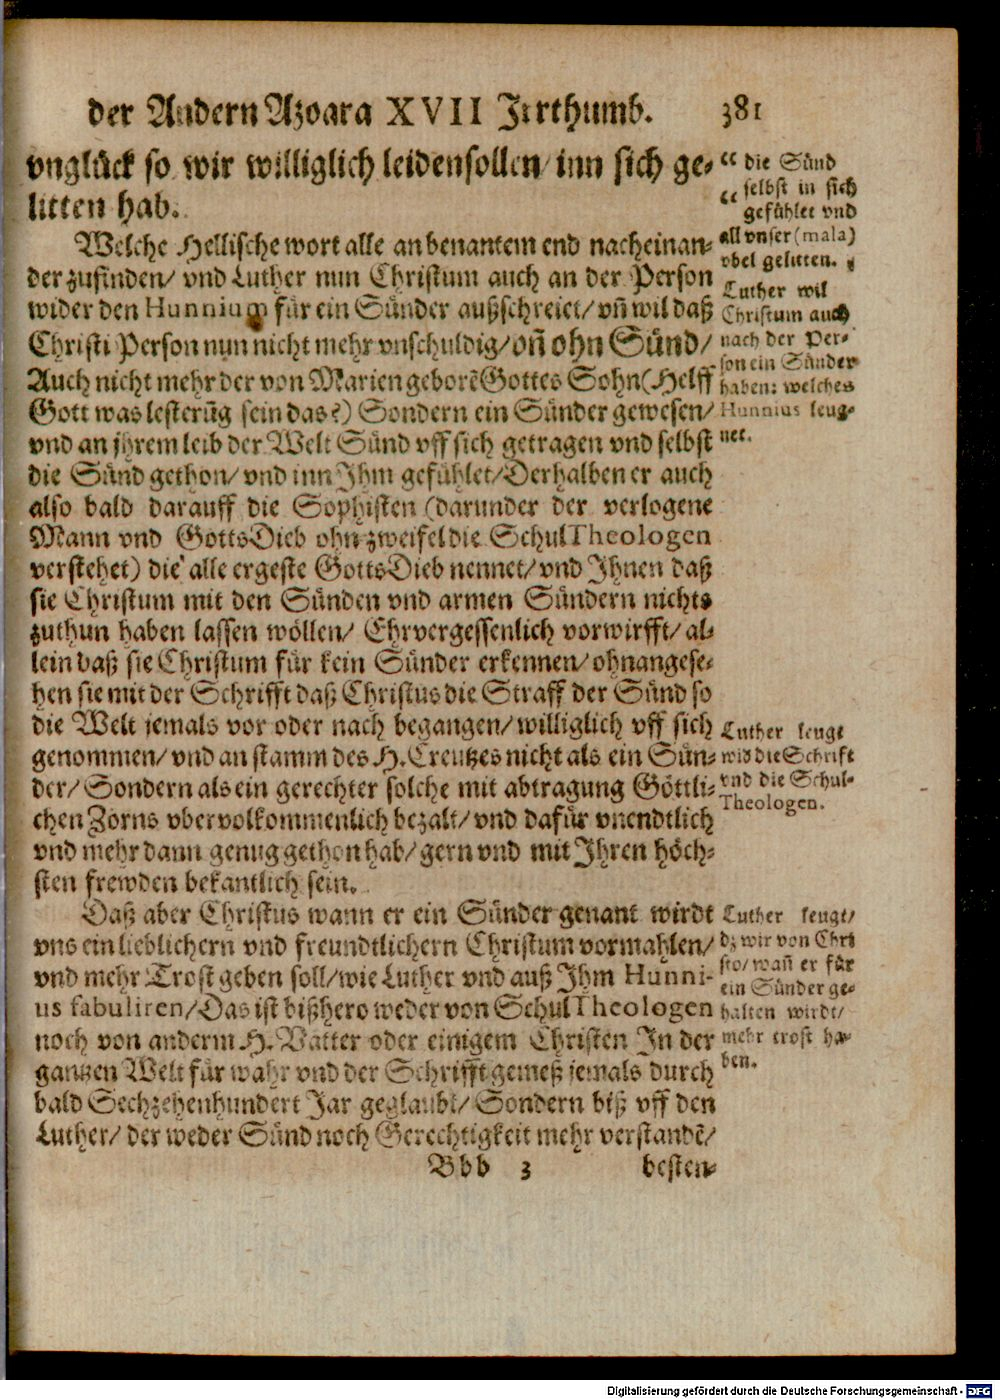 der Andern Azoara XVII Jrrthumb. 381
vnglück so wir williglich leiden sollen / inn sich ge-
litten hab.
Welche Hellische wort alle an benantem end nacheinan-
der zufinden / vnd Luther nun Christum auch an der Person
wider den Hunnium für ein Sünder außschreiet / vn̄ wil daß
Christi Person nun nicht mehr vnschuldig / on̄ ohn Sünd /
Auch nicht mehr der von Marien geborē Gottes Sohn (Helff
Gott was lesterūg sein das?) Sondern ein Sünder gewesen /
vnd an jhrem leib der Welt Sünd vff sich getragen vnd selbst
die Sünd gethon / vnd inn Jhm gefühlet / Derhalben er auch
also bald darauff die Sophisten (darunder der verlogene
Mann vnd GottsDieb ohn zweifel die SchulTheologen
verstehet) die alle ergeste GottsDieb nennet / vnd Jhnen daß
sie Christum mit den Sünden vnd armen Sündern nichts
zuthun haben lassen wöllen / Ehrvergessenlich vorwirfft / al-
lein daß sie Christum für kein Sünder erkennen / ohnangese-
hen sie mit der Schrifft daß Christus die Straff der Sünd so
die Welt jemals vor oder nach begangen / williglich vff sich
genommen / vnd an stamm des H. Creutzes nicht als ein Sün-
der / Sondern als ein gerechter solche mit abtragung Göttli-
chen Zorns vbervolkommenlich bezalt / vnd dafür vnendtlich
vnd mehr dann genug gethon hab / gern vnd mit Jhren höch-
sten frewden bekantlich sein.
Daß aber Christus wann er ein Sünder genant wirdt
vns ein lieblichern vnd freundtlichern Christum vormahlen /
vnd mehr Trost geben soll / wie Luther vnd auß Jhm Hunni-
us fabuliren / Das ist bißhero weder von SchulTheologen
noch von anderm H. Vatter oder einigem Christen Jn der
gantzen Welt für wahr vnd der Schrifft gemeß jemals durch
bald Sechzehenhundert Jar geglaubt / Sondern biß vff den
Luther / der weder Sünd noch Gerechtigkeit mehr verstandē /
Bbb 3 besten-
“ die Sünd
“ selbst in sich
gefühlet vnd
all vnser (mala)
vbel gelitten.
Luther wil
Christum auch
nach der Per-
son ein Sünder
haben: welches
Hunnius leug-
net.
Luther leugt
wid die Schrift
vnd die Schul-
Theologen.
Luther leugt /
dz wir von Chri
sto / wañ er für
ein Sünder ge-
halten wirdt /
mehr trost ha-
ben.
Digitalisierung gefördert durch die Deutsche Forschungsgemeinschaft - DFG